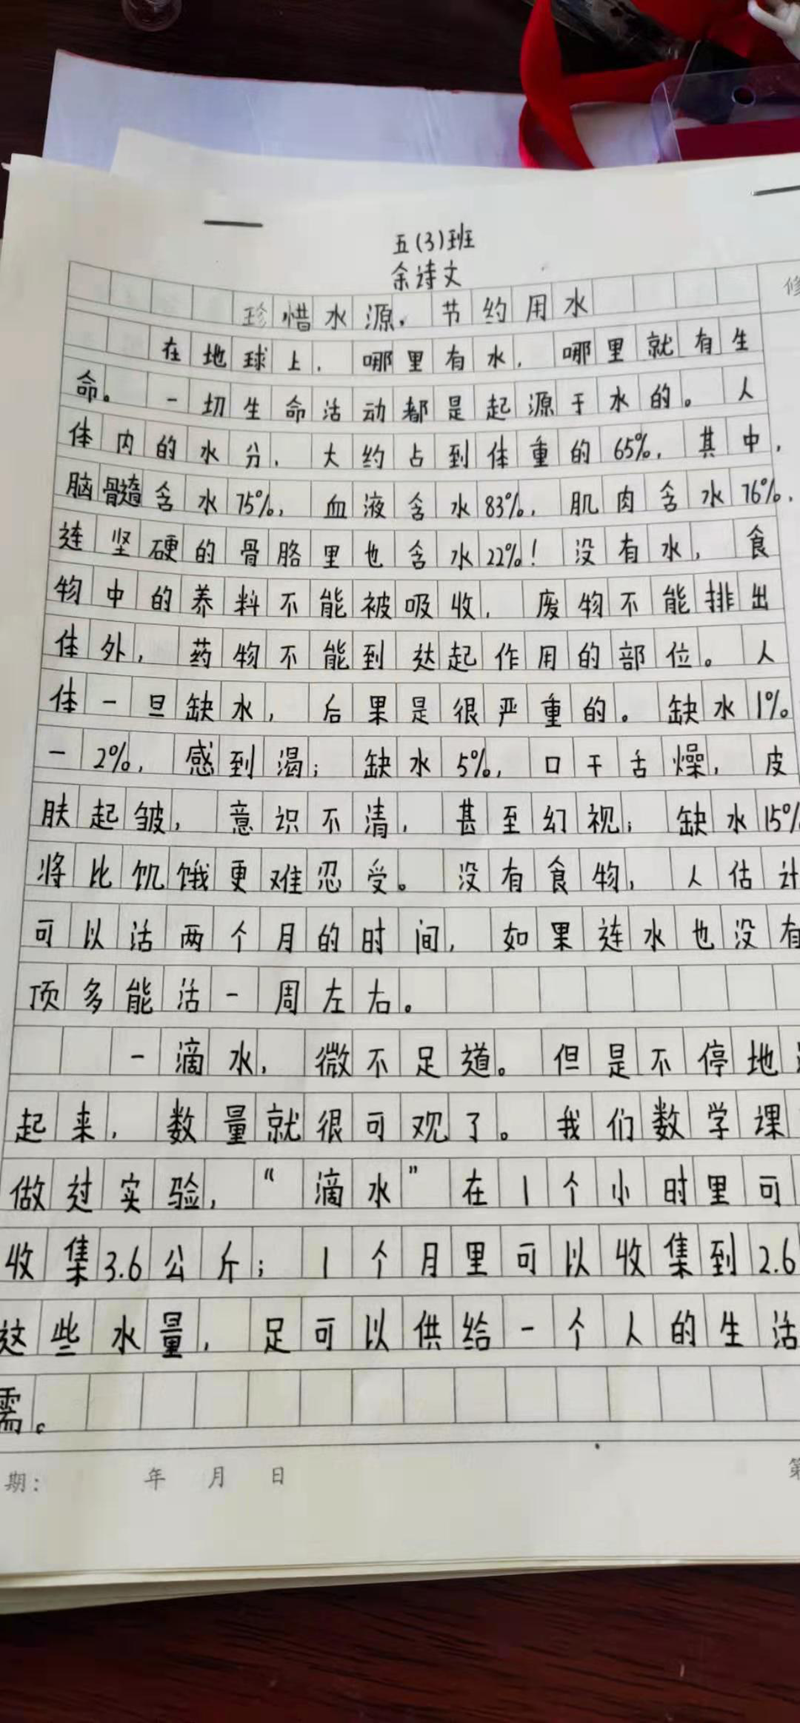 五(3)班
余诗文
修
珍惜水源，节约用水
在地球上，哪里有水，哪里就有生
命。一切生命活动都是起源于水的。人
体内的水分，大约占到体重的65%，其中，
脑髓含水75%，血液含水83%，肌肉含水76%，
连坚硬的骨骼里也含水22%！没有水，食
物中的养料不能被吸收，废物不能排出
体外，药物不能到达起作用的部位。人
体一旦缺水，后果是很严重的。缺水1%
一2%，感到渴；缺水5%，口干舌燥，皮
肤起皱，意识不清，甚至幻视；缺水15%
将比饥饿更难忍受。没有食物，人估计
可以活两个月的时间，如果连水也没有
顶多能活一周左右。
一滴水，微不足道。但是不停地
起来，数量就很可观了。我们数学课
做过实验，“滴水”在1个小时里可
收集3.6公斤；1个月里可以收集到2.6
这些水量，足可以供给一个人的生活
需。
期：　年　月　日
第